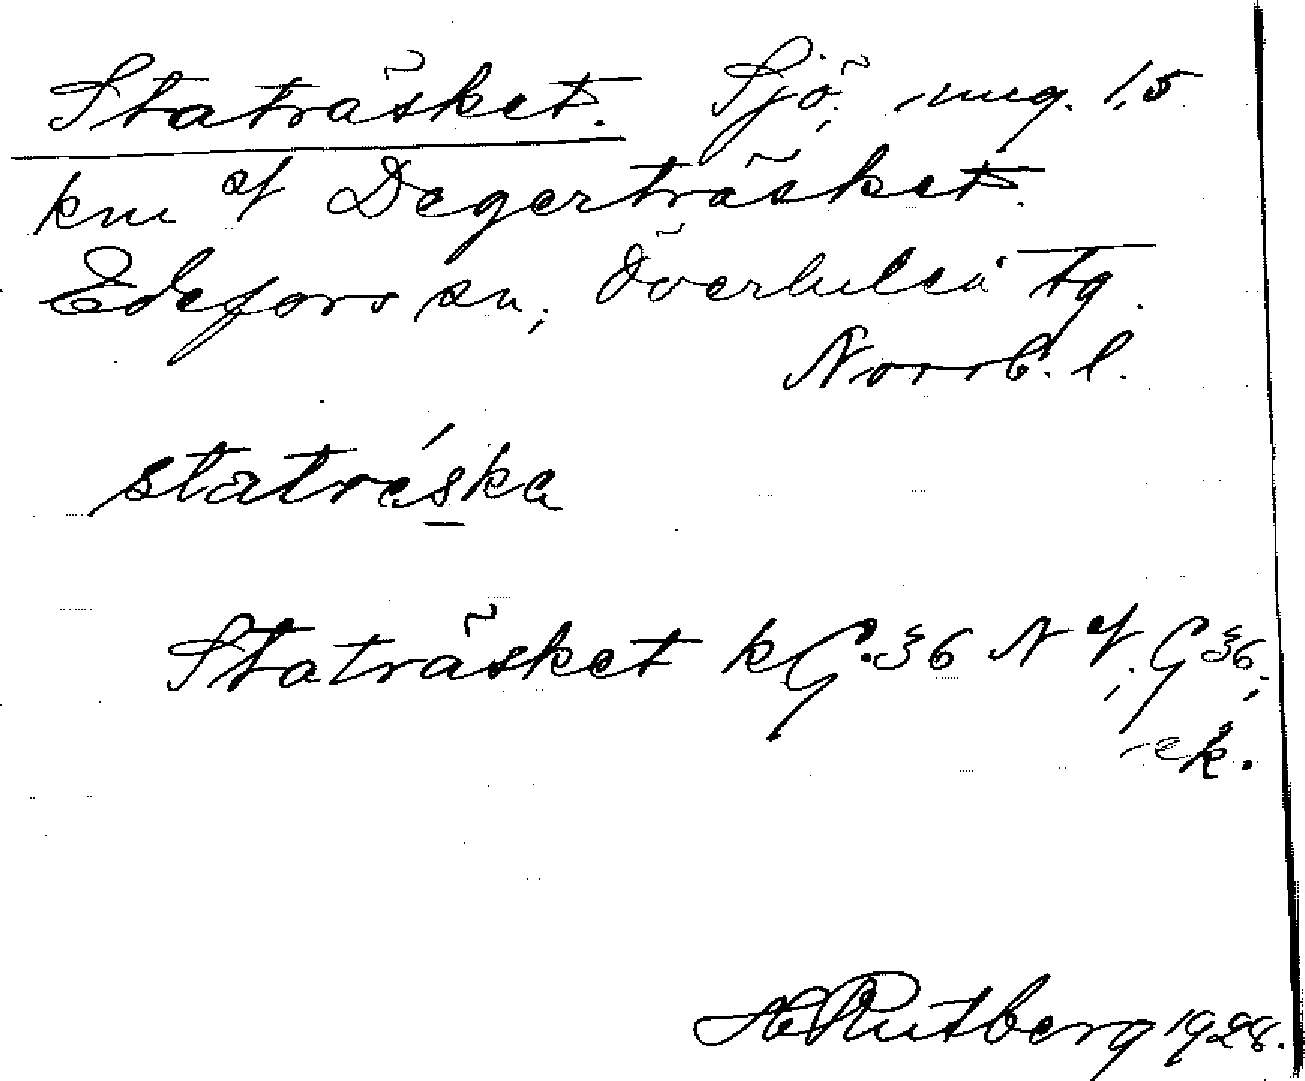 Staträsket. Sjö, ung. 1,5
km of Degerträsket.
Edefors sn, Överluleå tg.
Norrb. l.
statráska
Staträsket kG.36 N of. G 36,
ek.
H Rutberg 1928.